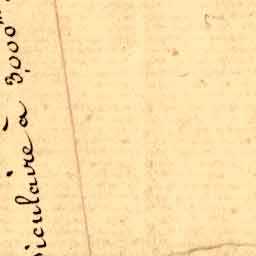 iculaire à 3,000ᵐ